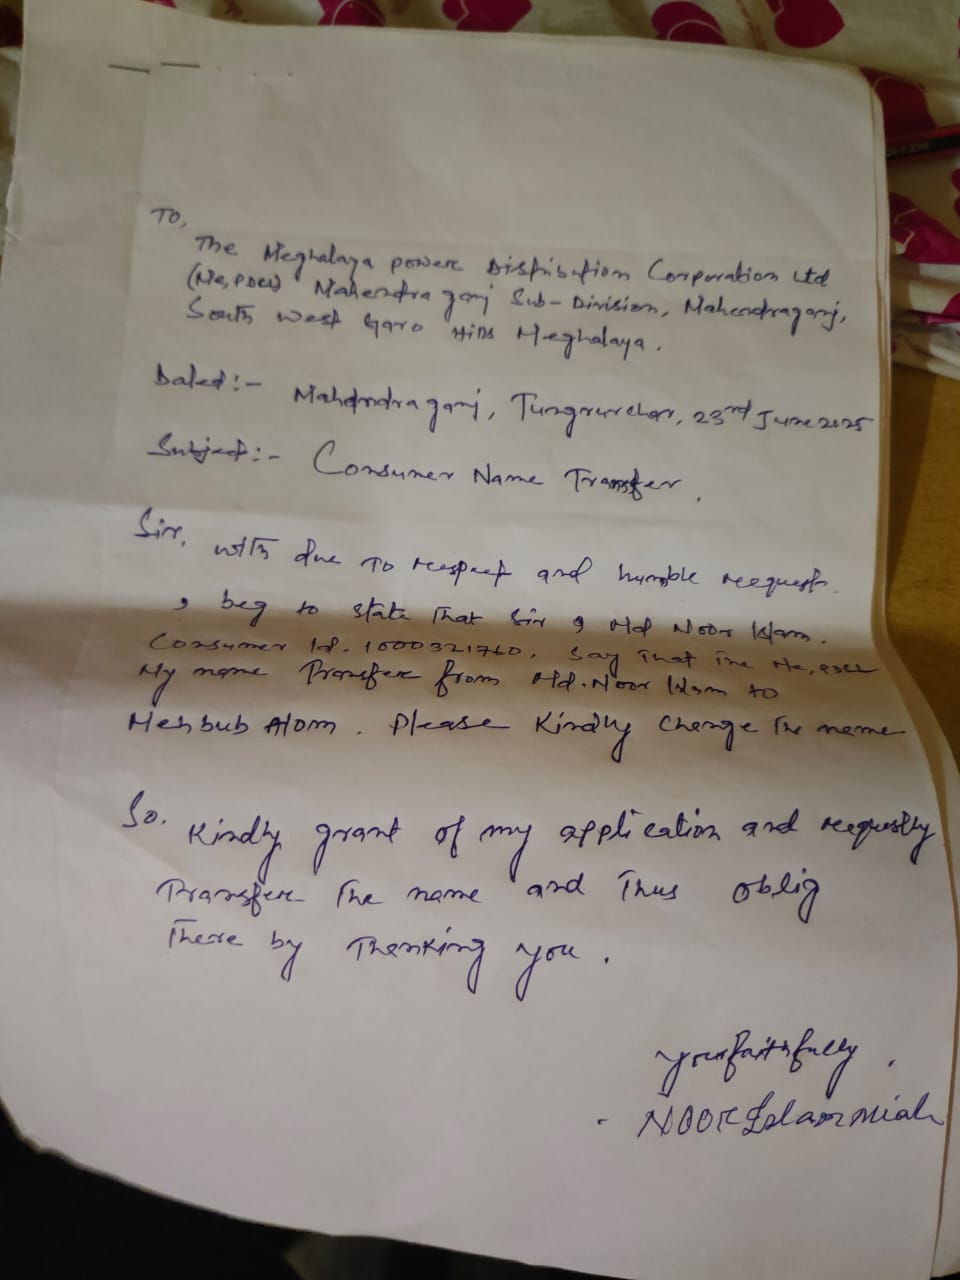 To,
The Meghalaya power Distribution Corporation Ltd
(Me,PDCL) Mahendraganj Sub-Division, Mahendraganj,
South West Garo Hills Meghalaya.
Dated:- Mahendraganj, 23rd June 2025
Subject:- Consumer Name Transfer.
Sir, with due to respect and humble request.
I beg to state that Sir I Md Noor Islam.
Consumer Id. 1000321760. Say that the Me,PDCL
My name Transfer from Md. Noor Islam to
Mehbub Alom. Please Kindly Change the name
So. Kindly grant of my application and requestly
Transfer the name and thus oblig
There by Thanking you.
your faithfully.
- NOOR Islam miah